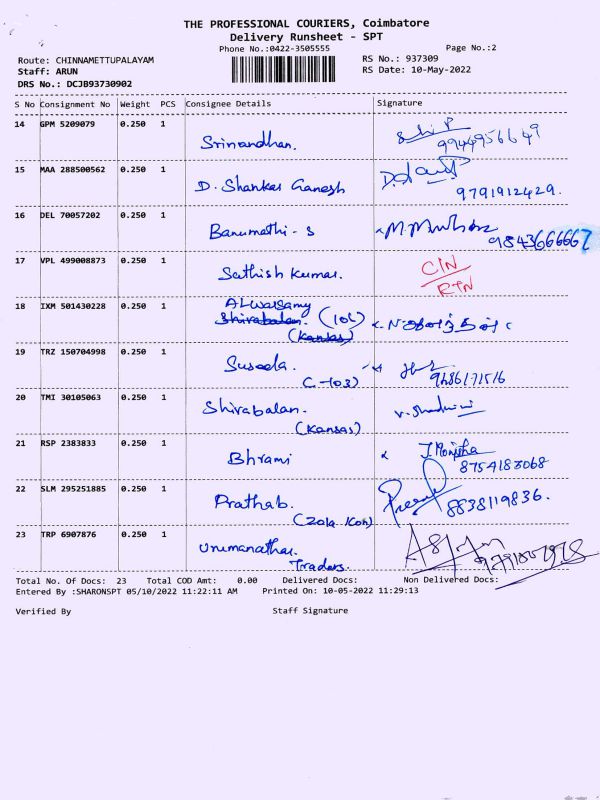 THE PROFESSIONAL COURIERS, Coimbatore
Delivery Runsheet - SPT
Phone No.:0422-3505555
Page No.:2
Route: CHINNAMETTUPALAYAM
RS No.: 937309
Staff: ARUN
RS Date: 10-May-2022
DRS No.: DCJB93730902
S No Consignment No Weight PCS Consignee Details Signature
14 GPM 5209079 0.250 1 Srinandhan. 9944956649
15 MAA 288500562 0.250 1 D. Shankar Ganesh 9791912429.
16 DEL 70057202 0.250 1 Banumathi - s 9843666667
17 VPL 499008873 0.250 1 Sathish Kumar. CIN
RTN
18 IXM 501430228 0.250 1 Alwarsamy
Shivabalan. (10C)
(Kansas)
19 TRZ 150704998 0.250 1 Suseela.
C-103) 9486171516
20 TMI 30105063 0.250 1 Shivabalan.
(Kansas)
21 RSP 2383833 0.250 1 Bhrami
8754183068
22 SLM 295251885 0.250 1 Prathab.
(Zola Icon) 8838119836.
23 TRP 6907876 0.250 1
Traders.
Total No. Of Docs: 23 Total COD Amt: 0.00 Delivered Docs: Non Delivered Docs:
Entered By :SHARONSPT 05/10/2022 11:22:11 AM Printed On: 10-05-2022 11:29:13
Verified By Staff Signature